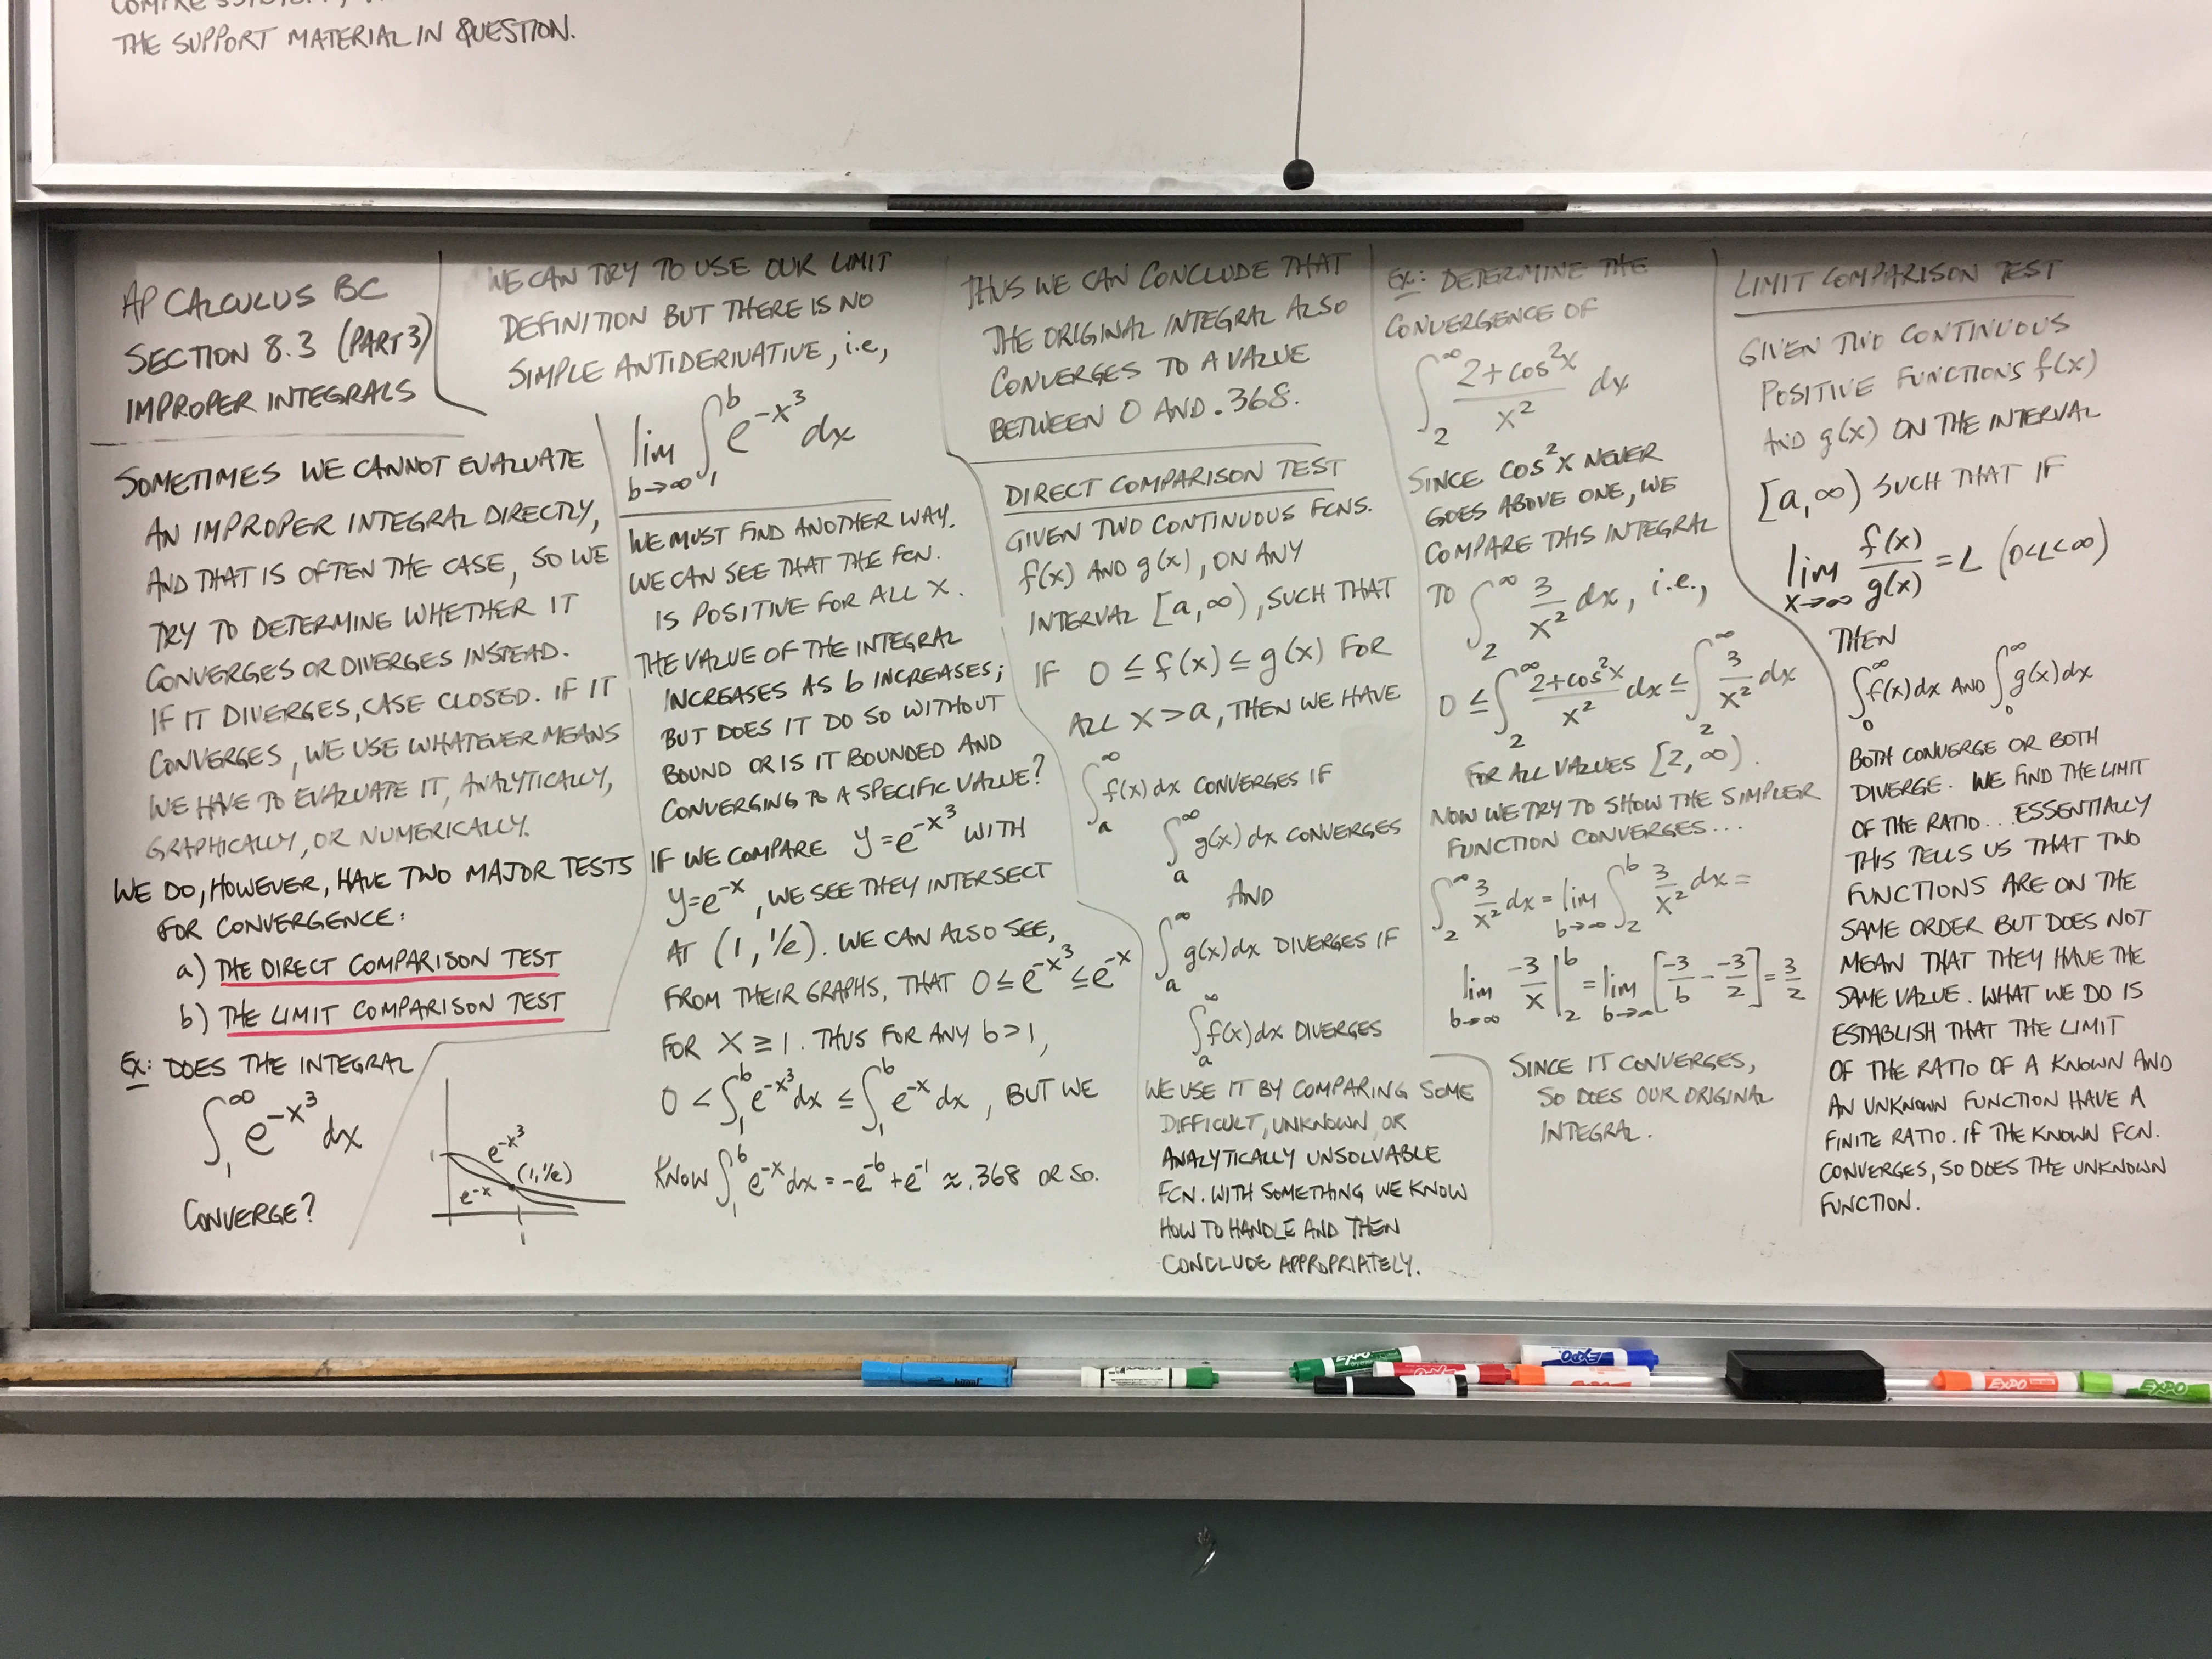 THE SUPPORT MATERIAL IN QUESTION.
AP CALCULUS BC
SECTION 8.3 (PART 3)
IMPROPER INTEGRALS
SOMETIMES WE CANNOT EVALUATE
AN IMPROPER INTEGRAL DIRECTLY,
AND THAT IS OFTEN THE CASE, SO WE
TRY TO DETERMINE WHETHER IT
CONVERGES OR DIVERGES INSTEAD.
IF IT DIVERGES, CASE CLOSED. IF IT
CONVERGES, WE USE WHATEVER MEANS
WE HAVE TO EVALUATE IT, ANALYTICALLY,
GRAPHICALLY, OR NUMERICALLY.
WE DO, HOWEVER, HAVE TWO MAJOR TESTS
FOR CONVERGENCE:
a) THE DIRECT COMPARISON TEST
b) THE LIMIT COMPARISON TEST
EX: DOES THE INTEGRAL
∫₁^∞ e^(-x³) dx
CONVERGE?
1
e^(-x³)
(1, 1/e)
e^(-x)
1
WE CAN TRY TO USE OUR LIMIT
DEFINITION BUT THERE IS NO
SIMPLE ANTIDERIVATIVE, i.e,
lim b→∞ ∫₁^b e^(-x³) dx
WE MUST FIND ANOTHER WAY.
WE CAN SEE THAT THE FCN.
IS POSITIVE FOR ALL X.
THE VALUE OF THE INTEGRAL
INCREASES AS b INCREASES;
BUT DOES IT DO SO WITHOUT
BOUND OR IS IT BOUNDED AND
CONVERGING TO A SPECIFIC VALUE?
IF WE COMPARE y=e^(-x³) WITH
y=e^(-x), WE SEE THEY INTERSECT
AT (1, 1/e). WE CAN ALSO SEE,
FROM THEIR GRAPHS, THAT 0 ≤ e^(-x³) ≤ e^(-x)
FOR X ≥ 1. THUS FOR ANY b > 1,
0 < ∫₁^b e^(-x³) dx ≤ ∫₁^b e^(-x) dx, BUT WE
KNOW ∫₁^b e^(-x) dx = -e^(-b) + e^(-1) ≈ .368 OR SO.
THUS WE CAN CONCLUDE THAT
THE ORIGINAL INTEGRAL ALSO
CONVERGES TO A VALUE
BETWEEN 0 AND .368.
DIRECT COMPARISON TEST
GIVEN TWO CONTINUOUS FCNS.
f(x) AND g(x), ON ANY
INTERVAL [a, ∞), SUCH THAT
IF 0 ≤ f(x) ≤ g(x) FOR
ALL X > a, THEN WE HAVE
∫ₐ^∞ f(x) dx CONVERGES IF
∫ₐ^∞ g(x) dx CONVERGES
AND
∫ₐ^∞ g(x) dx DIVERGES IF
∫ₐ^∞ f(x) dx DIVERGES
WE USE IT BY COMPARING SOME
DIFFICULT, UNKNOWN, OR
ANALYTICALLY UNSOLVABLE
FCN. WITH SOMETHING WE KNOW
HOW TO HANDLE AND THEN
CONCLUDE APPROPRIATELY.
EX: DETERMINE THE
CONVERGENCE OF
∫₂^∞ (2+cos²x)/x² dx
SINCE cos²x NEVER
GOES ABOVE ONE, WE
COMPARE THIS INTEGRAL
TO ∫₂^∞ 3/x² dx, i.e.,
0 ≤ ∫₂^∞ (2+cos²x)/x² dx ≤ ∫₂^∞ 3/x² dx
FOR ALL VALUES [2, ∞).
NOW WE TRY TO SHOW THE SIMPLER
FUNCTION CONVERGES...
∫₂^∞ 3/x² dx = lim b→∞ ∫₂^b 3/x² dx =
lim b→∞ -3/x |₂^b = lim b→∞ [-3/b - -3/2] = 3/2
SINCE IT CONVERGES,
SO DOES OUR ORIGINAL
INTEGRAL.
LIMIT COMPARISON TEST
GIVEN TWO CONTINUOUS
POSITIVE FUNCTIONS f(x)
AND g(x) ON THE INTERVAL
[a, ∞) SUCH THAT IF
lim x→∞ f(x)/g(x) = L (0<L<∞)
THEN
∫₀^∞ f(x) dx AND ∫₀^∞ g(x) dx
BOTH CONVERGE OR BOTH
DIVERGE. WE FIND THE LIMIT
OF THE RATIO... ESSENTIALLY
THIS TELLS US THAT TWO
FUNCTIONS ARE ON THE
SAME ORDER BUT DOES NOT
MEAN THAT THEY HAVE THE
SAME VALUE. WHAT WE DO IS
ESTABLISH THAT THE LIMIT
OF THE RATIO OF A KNOWN AND
AN UNKNOWN FUNCTION HAVE A
FINITE RATIO. IF THE KNOWN FCN.
CONVERGES, SO DOES THE UNKNOWN
FUNCTION.
EXPO
EXPO
EXPO
EXPO